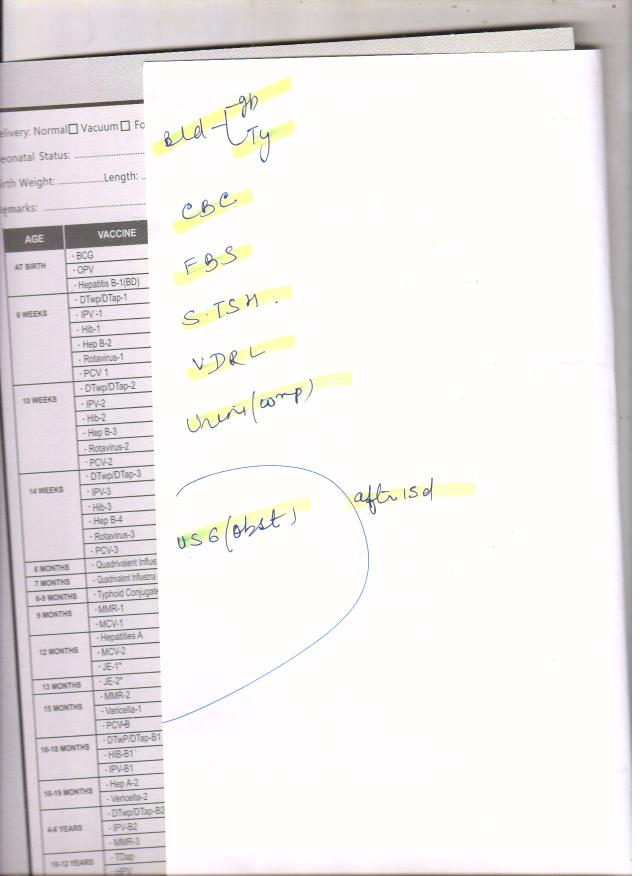 elivery: Normal☐ Vacuum☐ Fo
eonatal Status: ..........................
irth Weight: ..............Length: ..
emarks: ................................
AGE VACCINE
AT BIRTH
- BCG
- OPV
- Hepatitis B-1(BD)
6 WEEKS
- DTwp/DTap-1
- IPV -1
- Hib-1
- Hep B-2
- Rotavirus-1
- PCV 1
10 WEEKS
- DTwp/DTap-2
- IPV-2
- Hib-2
- Hep B-3
- Rotavirus-2
- PCV-2
14 WEEKS
- DTwp/DTap-3
- IPV-3
- Hib-3
- Hep B-4
- Rotavirus-3
- PCV-3
6 MONTHS - Quadrivalent Influe
7 MONTHS - Quadrivalent Influezna
6-9 MONTHS - Typhoid Conjugate
9 MONTHS
- MMR-1
- MCV-1
12 MONTHS
- Hepatities A
- MCV-2
- JE-1*
13 MONTHS - JE-2*
15 MONTHS
- MMR-2
- Varicella-1
- PCV-B
16-18 MONTHS
- DTwP/DTap-B1
- HIB-B1
- IPV-B1
18-19 MONTHS
- Hep A-2
- Vericella-2
4-6 YEARS
- DTwp/DTap-B2
- IPV-B2
- MMR-3
10-12 YEARS
- TDap
- HPV
Bld - gp
Ty
CBC
FBS
S.TSH.
VDRL
Urine (comp)
USG (obst) after 15d